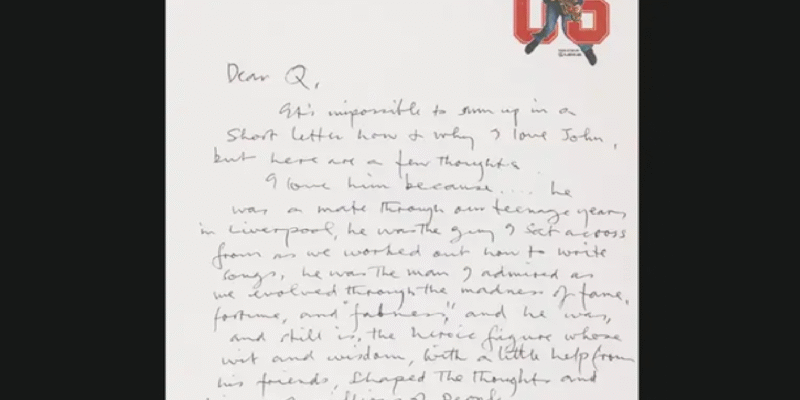 US
Dear Q,
It's impossible to sum up in a
short letter how & why I love John,
but here are a few thoughts.
I love him because.... he
was a mate through our teenage years
in Liverpool, he was the guy I sat across
from as we worked out how to write
songs, he was the man I admired as
we evolved through the madness of fame,
fortune, and "fabness," and he was,
and still is, the heroic figure whose
wit and wisdom, with a little help from
his friends, shaped the thoughts and
of people